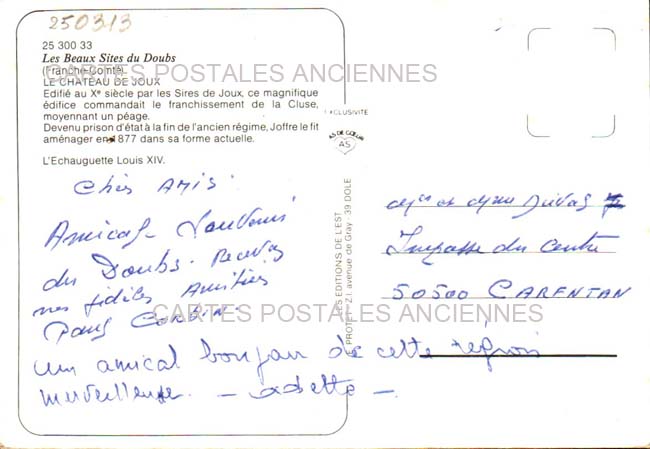 250313
25 300 33
Les Beaux Sites du Doubs
(Franche-Comté)
LE CHATEAU DE JOUX
Edifié au Xᵉ siècle par les Sires de Joux, ce magnifique
édifice commandait le franchissement de la Cluse,
moyennant un péage.
Devenu prison d'état à la fin de l'ancien régime, Joffre le fit
aménager en 1877 dans sa forme actuelle.
L'Echauguette Louis XIV.
CARTES POSTALES ANCIENNES
EXCLUSIVITE
AS DE CŒUR
AS
LES EDITIONS DE L'EST
PROTET - Z.I. avenue de Gray - 39 DOLE
Chers AMIS
Amical Souvenir
du Doubs. Recevez
nos fidèles Amitiés
CORBIN
un amical bonjour de cette région
merveilleuse. - odette -
Mr et Mme Duval
Impasse du Centre
50500 CARENTAN
CARTES POSTALES ANCIENNES